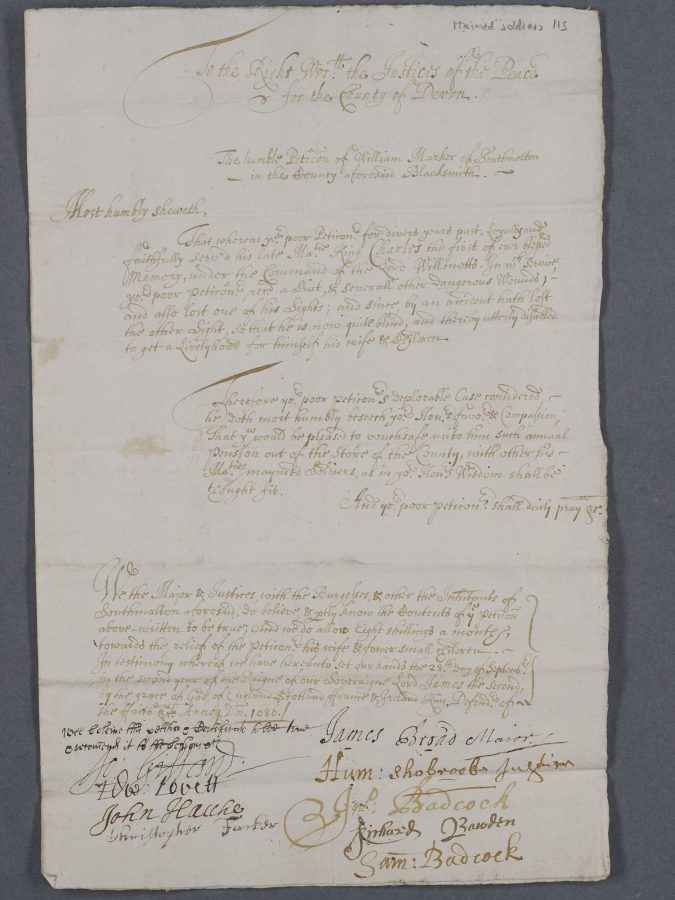 Maimed soldiers 115
To the Right Wor:tt the Justices of the Peace
for the County of Devon /
The humble Peticon of William Marker of Southmolton
in the County aforesaid Blacksmith.
Most humbly sheweth,
That whereas yor poor Peticonr for divers years past, Loyaly and
faithfully served his late Matie King Charles the first of ever blessed
Memory, under the Command of the Lord Willmotts. In wch Service,
yor poor Peticonr recd a Shot, & severall other Dangerous Wounds;
and also lost one of his Sights; and since by an accident hath lost
the other Sight, So that he is now quite blind, and thereby utterly disabled
to get a Livelyhood for himself his wife & Children
Therefore yor poor peticonrs Deplorable Case considered
he doth most humbly beseech yor Honrs favor & Compassion,
That ye would be pleased to vouchsafe unto him such annual
Pension out of the Store of the County, with other his
Maties maymed Soldiers, as in yor Honrs Wisdom shall be
thought fit.
And yor poor peticonr shall daily pray &c.
We the Major & Justices, with the Burgesses, & other the Inhitants of
Southmolton aforesaid, do believe, & ptly know the Contents of ye Peticon
above-written to be true; And we do allow Eight shillings a month
towards the relief of the Peticonr his wife & fower small Children.
In testimony whereof we have hereunto set our hands the 28th Day of Septembr
in the second year of the Raigne of our Soveraigne Lord James the second
by the grace of God of England Scotland France & Ireland King, Defendr of
the Faith &c Annoq Dni. 1686 /
Wee beleive this petition & Certificate to be true
& recommend it to the Sessions
James Broad Maior
Edw: Lovett
Hum: Shobrooke Justice
John Hacche
Jos: Badcock
Christopher Farker
Richard Bawden
Sam: Badcock